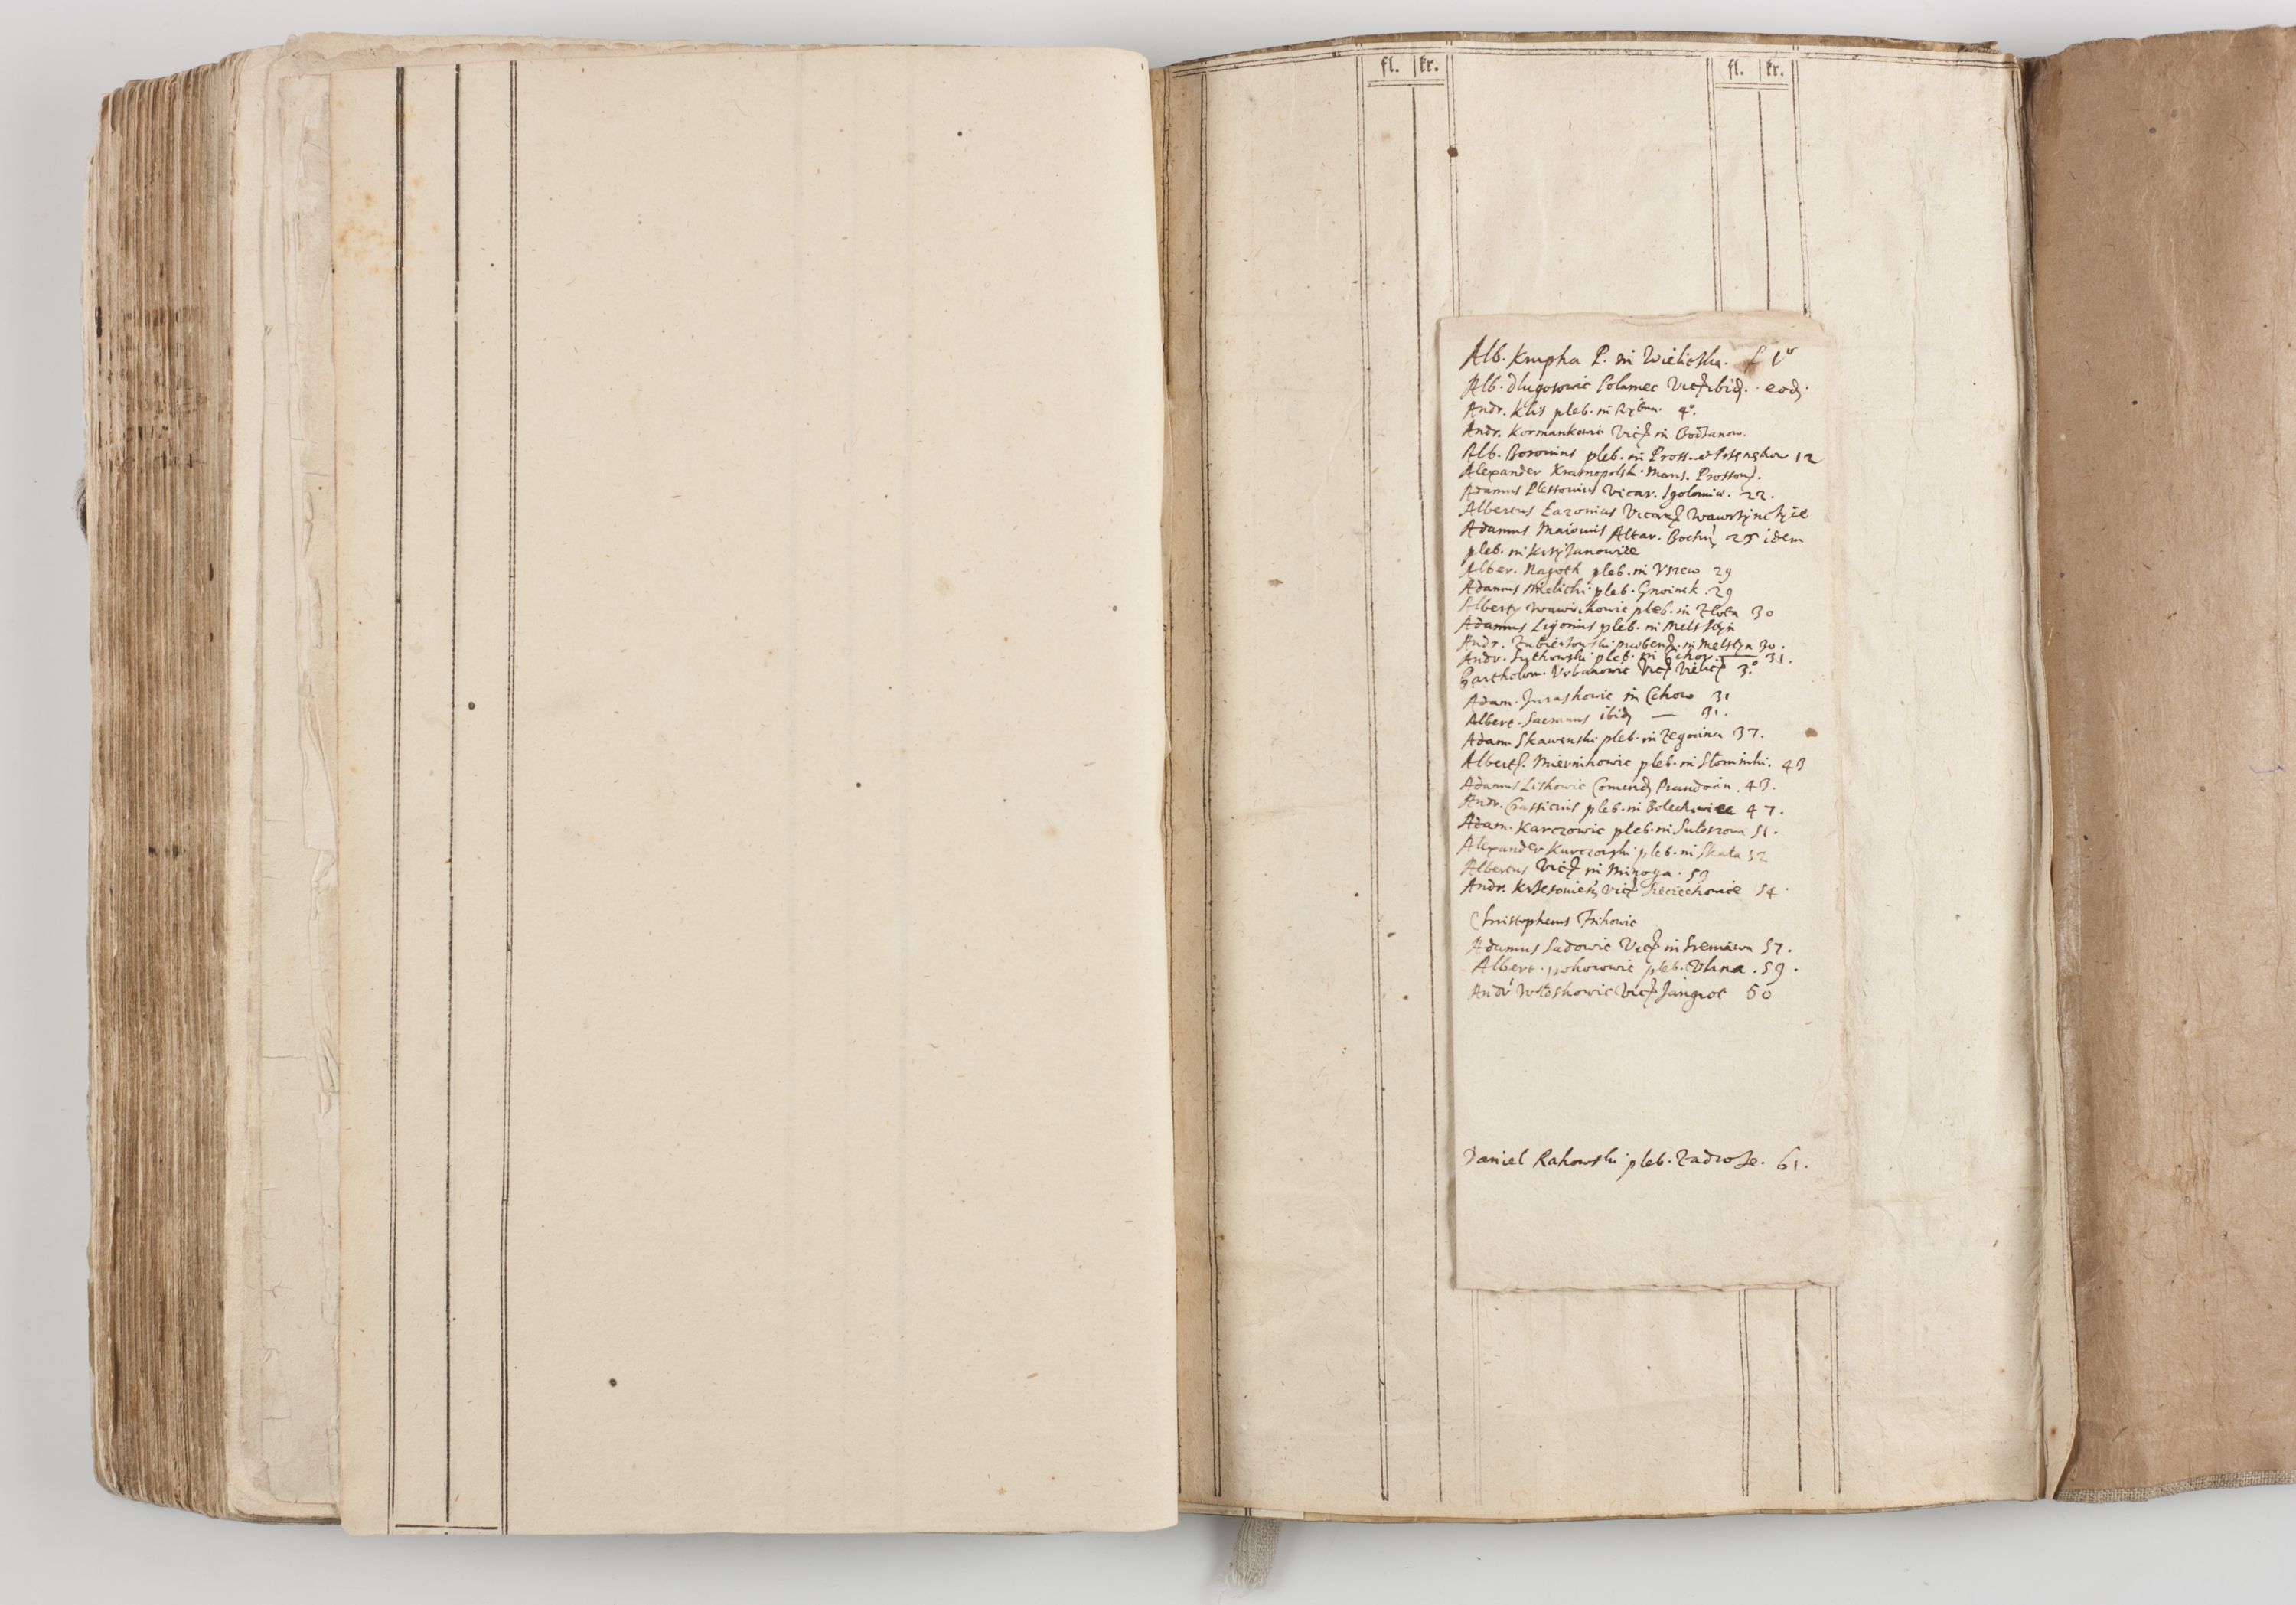 fl. kr. fl. kr.
Alb. Krupha P. in Wieliczka. f 1º
Alb. Dlugosowic Polamec Vic ibid. eod.
Andr. Klis pleb. in Rybna. 4º.
Andr. Kormankowic Vic in Bodzanow.
Alb. Borowius pleb. in Pross. et 12
Alexander Krasnopolski Mans. Prossov.
Adamus Plessowius Vicar. Igolomia. 22.
Albertus Lazonius Vicar Wawrzynczyce
Adamus Maiowius Altar. Bochn 25 idem
pleb. in Krzyzanowice
Alber. Nagoth pleb. in Vszew 29
Adamus Mielichi pleb. Gnoinik. 29
Albert Wawrikowic pleb. in Zlota 30
Adamus Ligonius pleb. in Melsztyn
Andr. in Melstyn 30.
Andr. Sytkowski pleb. in Cchov. 31.
Bartholom. Vrbanowic Vic Vielic 3.º
Adam. Juraskowic in Cchow 31
Albert. Sacranus ibid — 31.
Adam. Skawenski pleb. in Zegocina 37.
Albert. Miernikowic pleb. in Słomniki. 43
Adamus Liskowic Comend Prandocin. 43.
Andr. Crassicius pleb. in Bolechowice 47.
Adam. Karczowic pleb. in Sułoszowa 51.
Alexander Kurczowski pleb. in Skała 52
Albertus Vic in Minoga. 53
Andr. Vic Sieciechowice 54.
Christopherus Frikowic
Adamus Sadowic Vic in Sreniawa 57.
Albert. pokorowic pleb. Vlina. 59.
Andr Włoskowic Vic Jangrot 60
Daniel Rakowski pleb. Zadroze. 61.